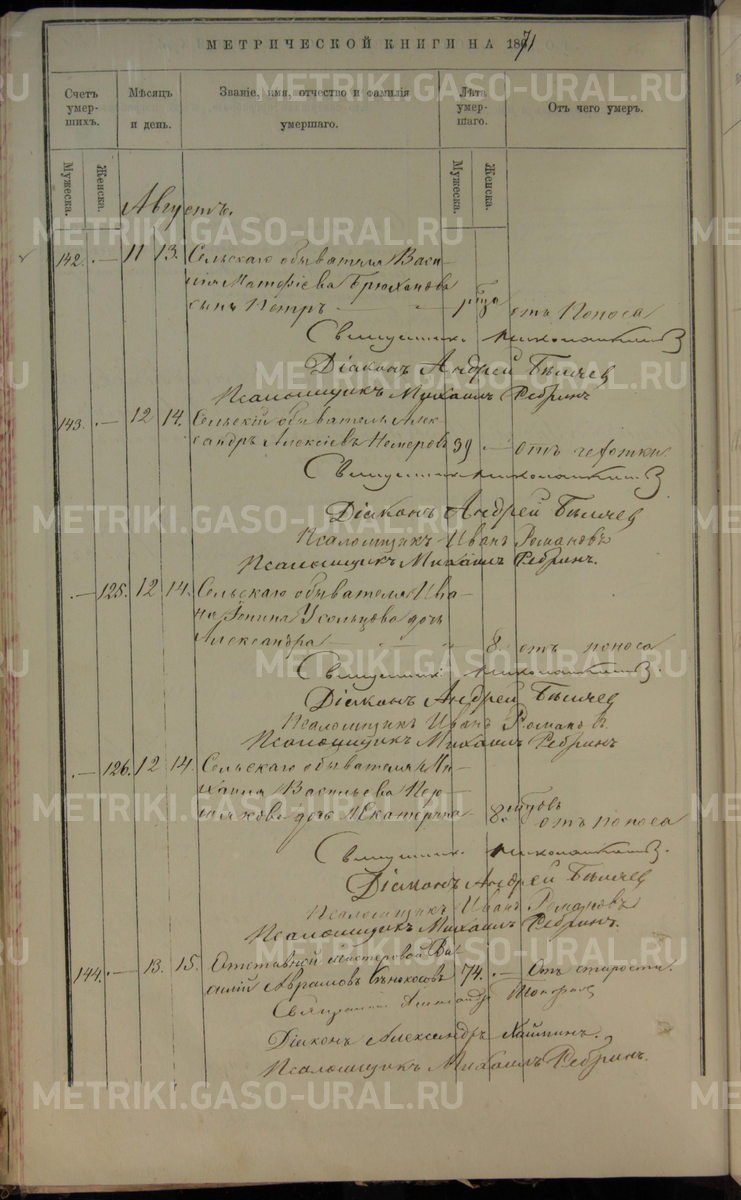 МЕТРИЧЕСКОЙ КНИГИ НА 1871
Счетъ умер- шихъ. Мѣсяцъ и день. Званіе, имя, отчество и фамилія умершаго. Лѣта умер- шаго. Отъ чего умеръ.
Мужеска. Женска. Мужеска. Женска.
Августъ.
142. 11 13. Сельскаго обывателя Васи-
лія Матфіева Брюханова
сынъ Петръ отъ поноса
Священникъ
Діаконъ Андрей Бѣляев
Псаломщикъ Михаилъ Ребринъ
143. 12 14. Сельскій обыватель Алек-
сандръ Алексіевъ Немеровъ 39 отъ чахотки
Священникъ
Діаконъ Андрей Бѣляев
Псаломщикъ Иванъ Романовъ
Псаломщикъ Михаилъ Ребринъ.
125. 12 14. Сельскаго обывателя Ива-
на Усольцева дочь
Александра 8. отъ поноса
Священникъ
Діаконъ Андрей Бѣляев
Псаломщикъ Иванъ Романовъ
Псаломщикъ Михаилъ Ребринъ
126. 12 14. Сельскаго обывателя Ми-
хаила Васильева
дочь Екатерина 8. отъ поноса
Священникъ
Діаконъ Андрей Бѣляев
Псаломщикъ Иванъ Романовъ
Псаломщикъ Михаилъ Ребринъ.
144. 13. 15. Отставной мастеровой Ва-
силій Аврамовъ 74. Отъ старости.
Священникъ Александръ
Діаконъ Александръ
Псаломщикъ Михаилъ Ребринъ.
METRIKI.GASO-URAL.RU